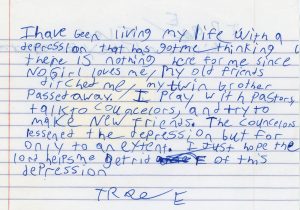 I have been living my life with a
depression that has got me thinking
there is nothing here for me since
No Girl loves me, my old friends
dirched me, my twin brother
Passed away. I Play with Pastors,
talk to Councelors, and try to
make New friends. The councelors
lessened the depression but for
only to an extent. I Just hope the
lord helps me get rid of this
depression